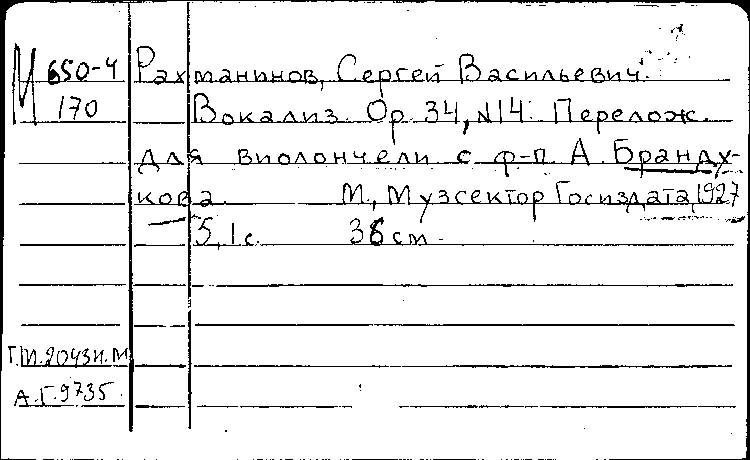 М 650-4 Рахманинов, Сергей Васильевич.
170 Вокализ. Ор. 34, №14. Перелож.
для виолончели с ф-п. А. Брандy-
кова. М., Музсектор Госиздата, 1927
5, 1с. 36 см.
Г.М.2043н.М
А.Г.9735.